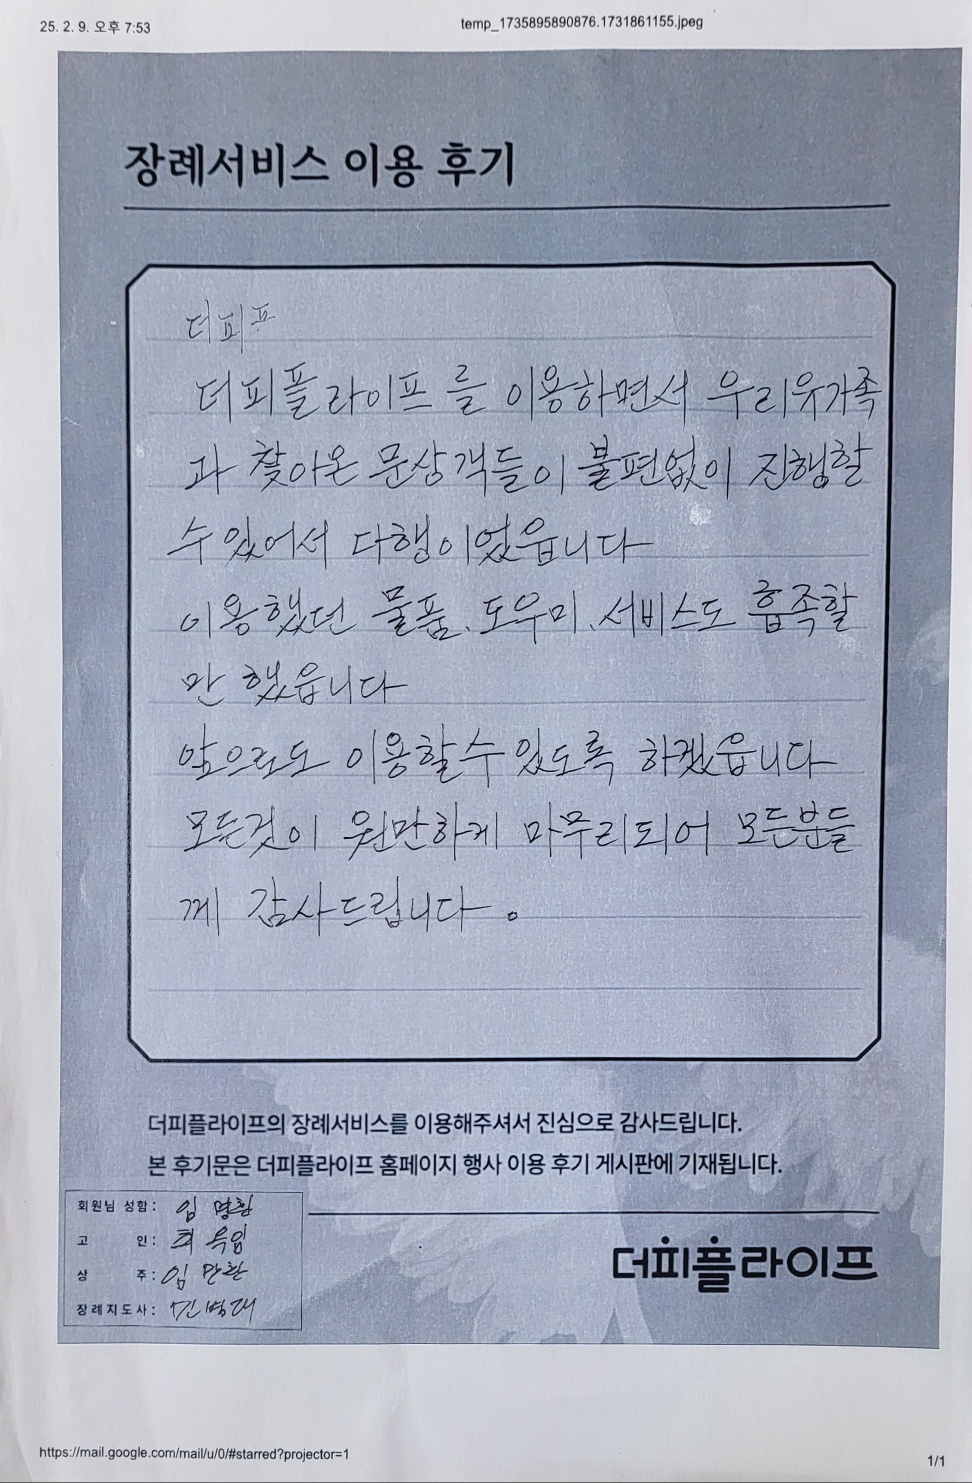 25. 2. 9. 오후 7:53
temp_1735895890876.1731861155.jpeg
장례서비스 이용 후기
더피프
더피플라이프를 이용하면서 우리유가족
과 찾아온 문상객들이 불편없이 진행할
수 있어서 다행이었읍니다
이용했던 물품、도우미、서비스도 흡족할
만 했읍니다
앞으로도 이용할수 있도록 하겠읍니다
모든것이 원만하게 마무리되어 모든분들
께 감사드립니다。
더피플라이프의 장례서비스를 이용해주셔서 진심으로 감사드립니다.
본 후기문은 더피플라이프 홈페이지 행사 이용 후기 게시판에 기재됩니다.
회원님 성함: 임
고 인: 최
상 주: 임만환
장례지도사: 민병대
더피플라이프
https://mail.google.com/mail/u/0/#starred?projector=1
1/1